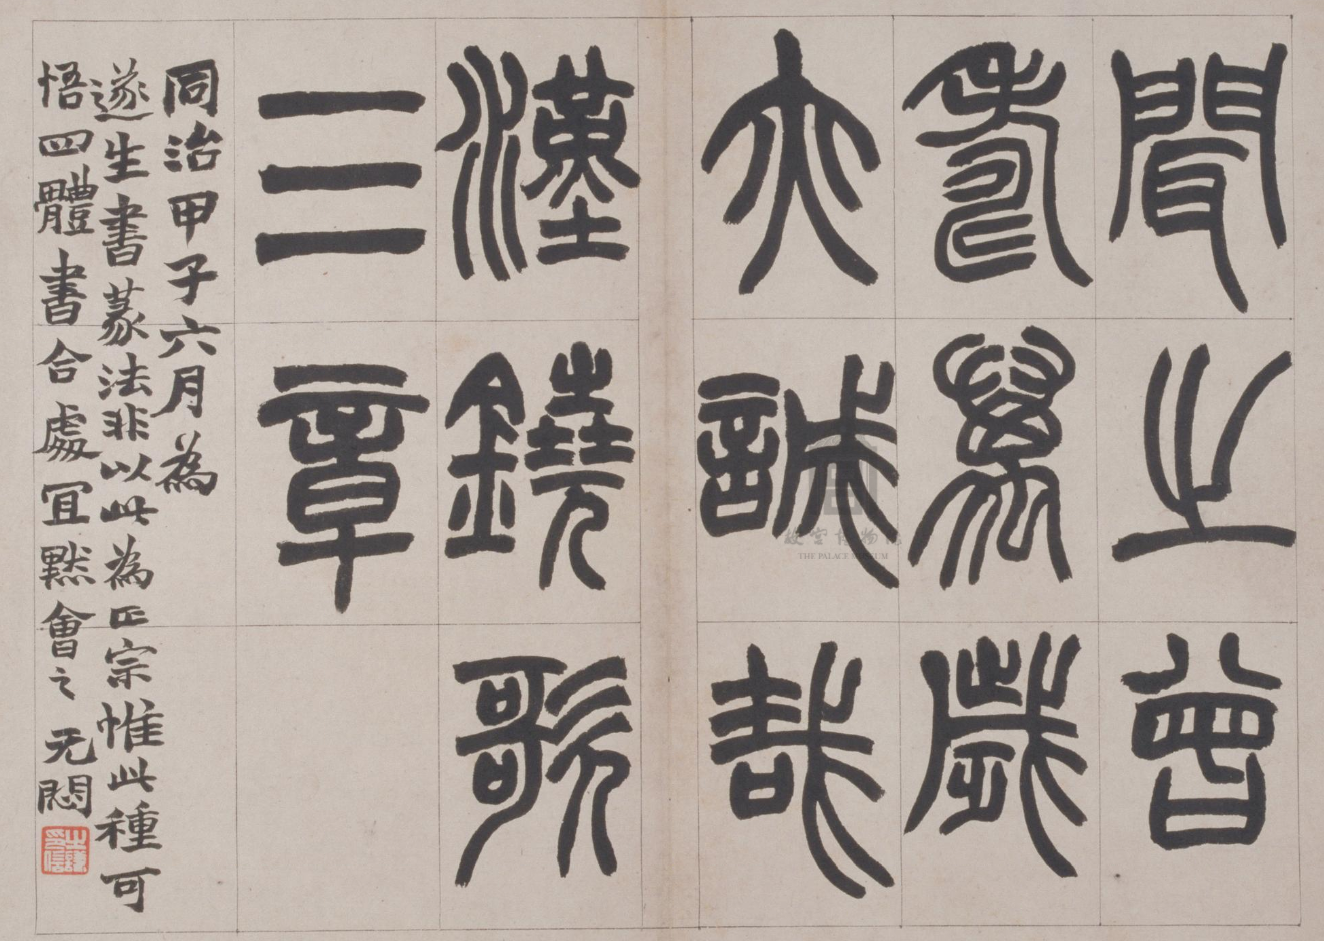 聞之曾
壽萬歲
亦誠哉
漢鐃歌
三章
同治甲子六月為
遂生書篆法非以此為正宗惟此種可
悟四體書合處宜默會之无悶
之謙印信
故宫博物院
THE PALACE MUSEUM